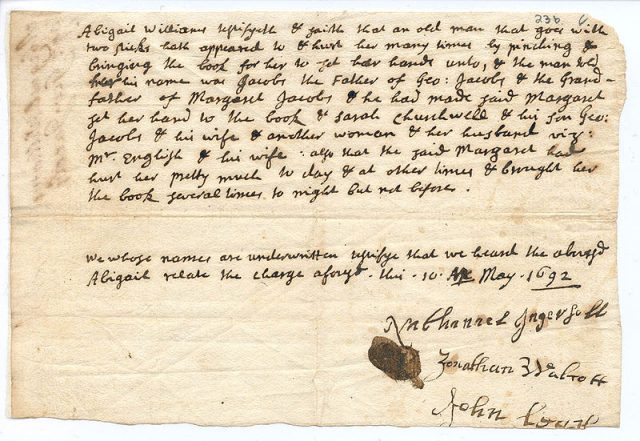 236
Abigail Williams testifyeth & saith that an old man that goes with
two sticks hath appeared to & hurt her many times by pinching &
bringing the book for her to set her hand unto, & the man told
her his name was Jacobs the Father of Geo: Jacobs & the Grand-
father of Margaret Jacobs & he had made said Margaret
set her hand to the book & Sarah Churchwell & his son Geo:
Jacobs & his wife & another woman & her husband viz:
Mr. English & his wife: also that the said Margaret had
hurt her pretty much to day & at other times & brought her
the book several times to night but not before.
We whose names are underwritten testifye that we heard the abovesd
Abigail relate the charge aforesd. this. 10. May. 1692
Nathanael Ingersoll
Jonathan Walcott
John